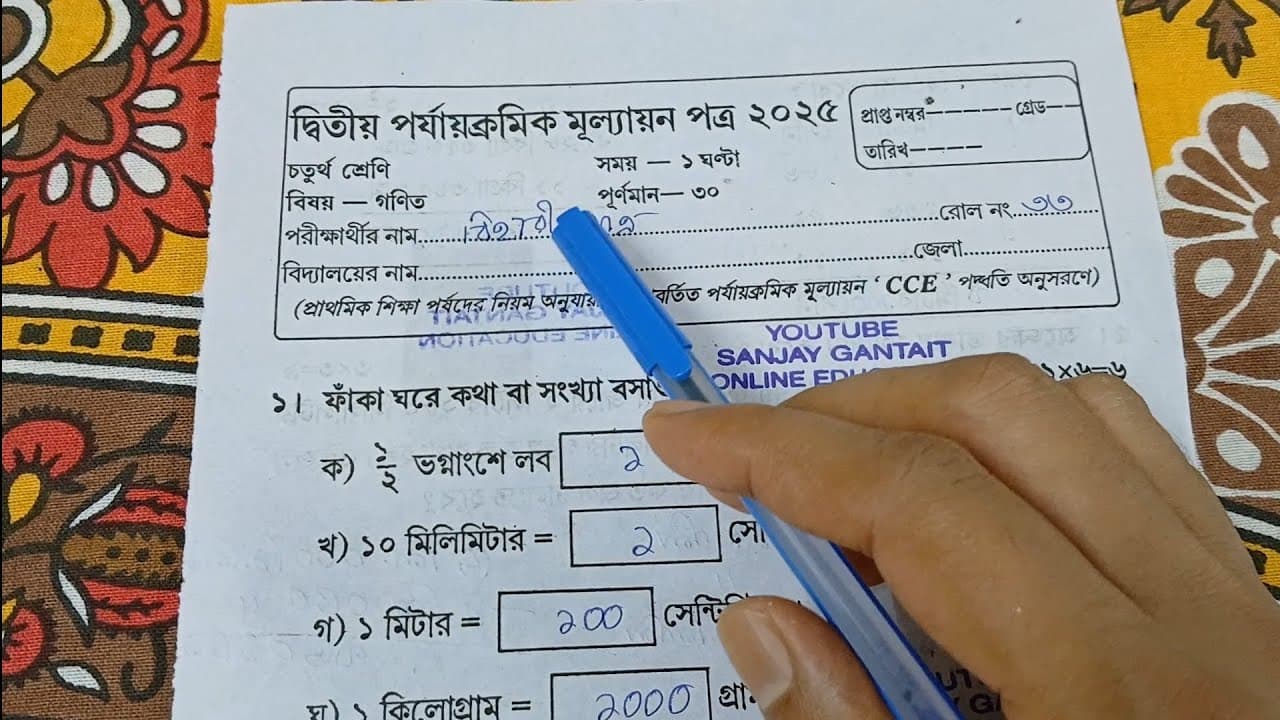 দ্বিতীয় পর্যায়ক্রমিক মূল্যায়ন পত্র ২০২৫
প্রাপ্ত নম্বর————— গ্রেড——
তারিখ————
চতুর্থ শ্রেণি
সময় — ১ ঘণ্টা
বিষয় — গণিত
পূর্ণমান— ৩০
পরীক্ষার্থীর নাম
রোল নং
বিদ্যালয়ের নাম
জেলা
(প্রাথমিক শিক্ষা পর্ষদের নিয়ম পর্যায়ক্রমিক মূল্যায়ন ‘ CCE ’ পদ্ধতি অনুসরণে)
YOUTUBE
SANJAY GANTAIT
ONLINE
১। ফাঁকা ঘরে কথা বা সংখ্যা
ক) ১/২ ভগ্নাংশে লব ১
খ) ১০ মিলিমিটার = ১
গ) ১ মিটার = ১০০
ঘ) ১ কিলোগ্রাম = ১০০০